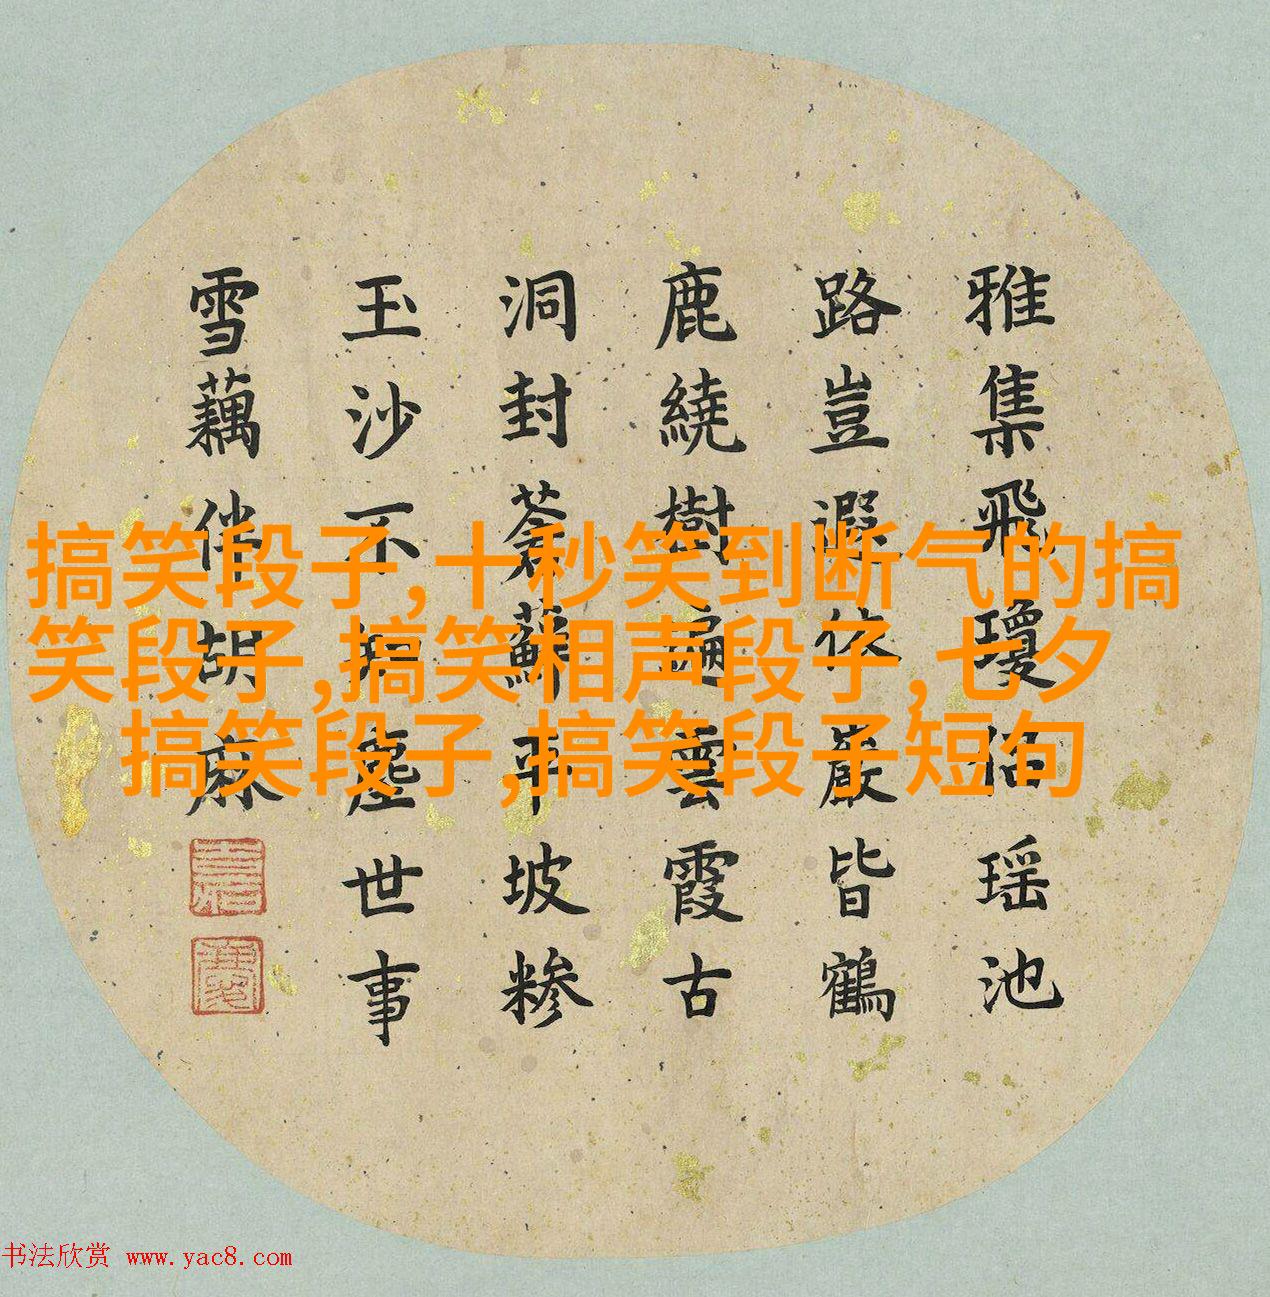 搞笑段子,十秒笑到断气的搞
笑段子,搞笑相声段子,七夕
搞笑段子,搞笑段子短句
雅集飛瓊瑶池
路豈遐依巖皆鶴
鹿繞樹遍雲霞古
洞封蒼蘚平坡糝
玉沙不塵世事
雪藕伴胡麻
书法欣赏 www.yac8.com